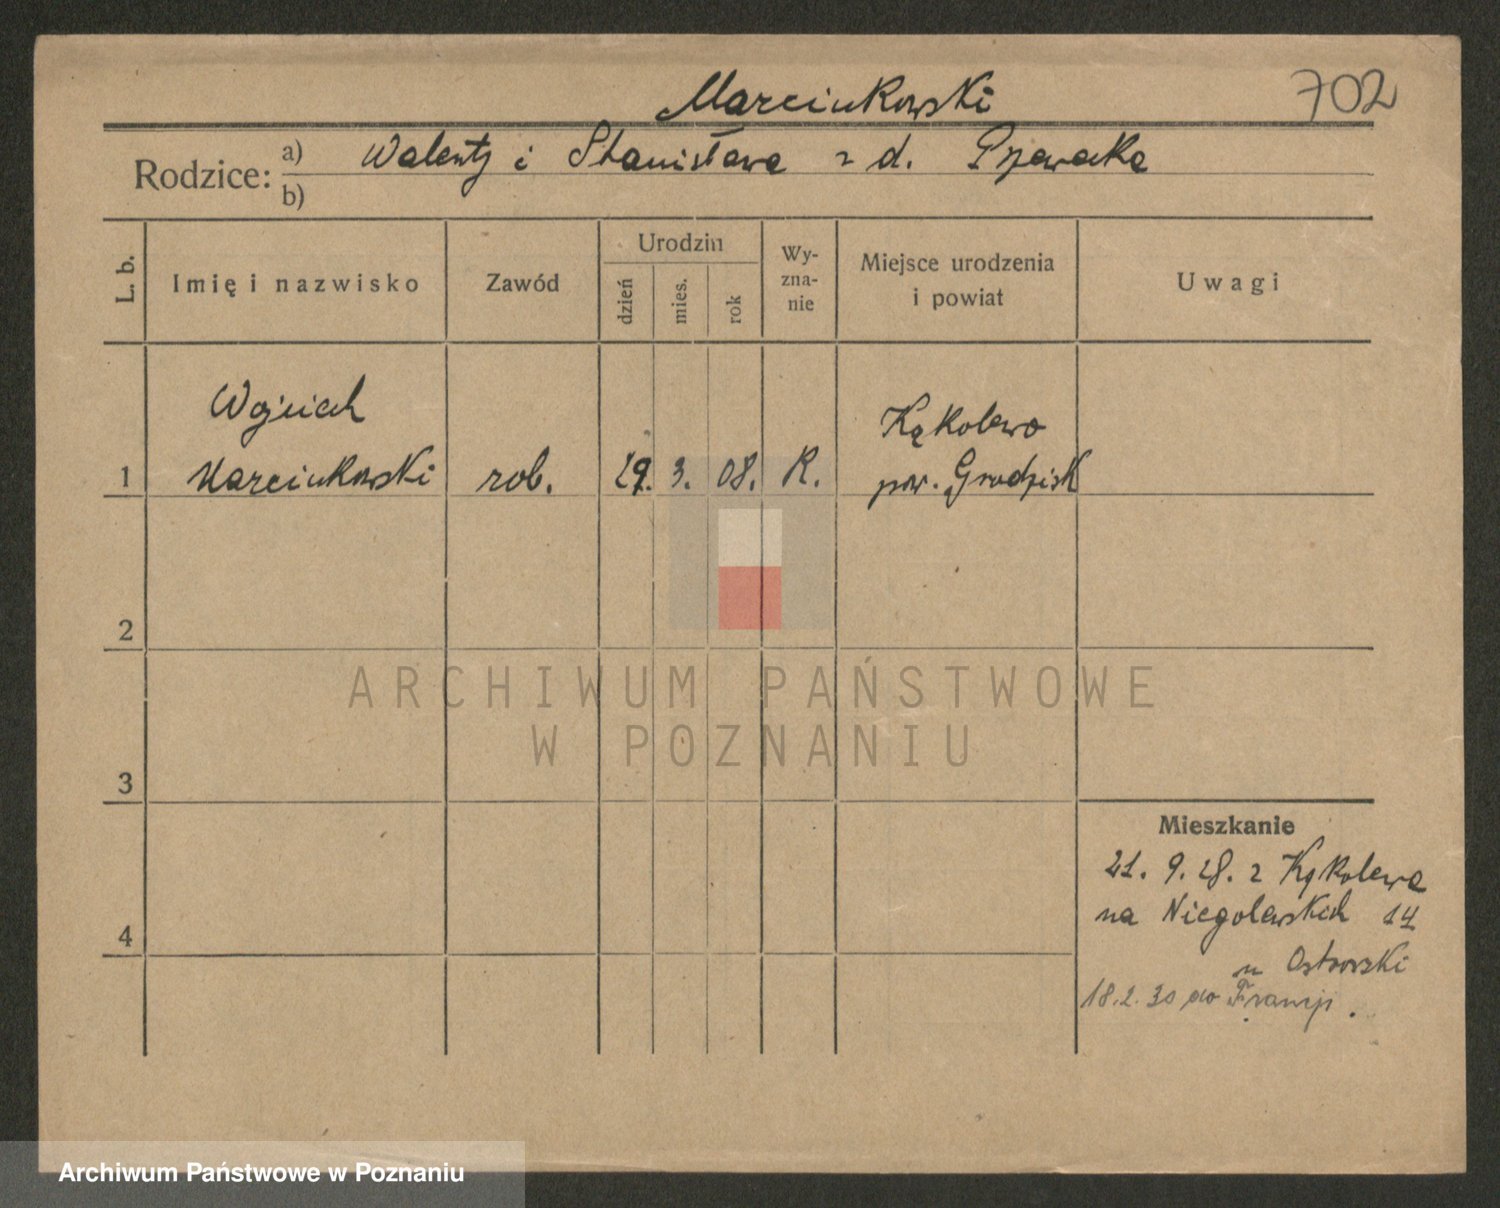 Marcinkowski 702
Rodzice: a) Walenty i Stanisława z d.
b)
L. b. Imię i nazwisko Zawód Urodzin dzień mies. rok Wy-zna-nie Miejsce urodzenia i powiat Uwagi
Wojciech Kąkolewo
1 Marcinkowski rob. 29. 3. 08. R. pow. Grodzisk
2
3
4
Mieszkanie
21. 9. 28. z Kąkolewa
na Niegolewskich 14
u
18.2.30 do Francji.
ARCHIWUM PAŃSTWOWE
W POZNANIU
Archiwum Państwowe w Poznaniu